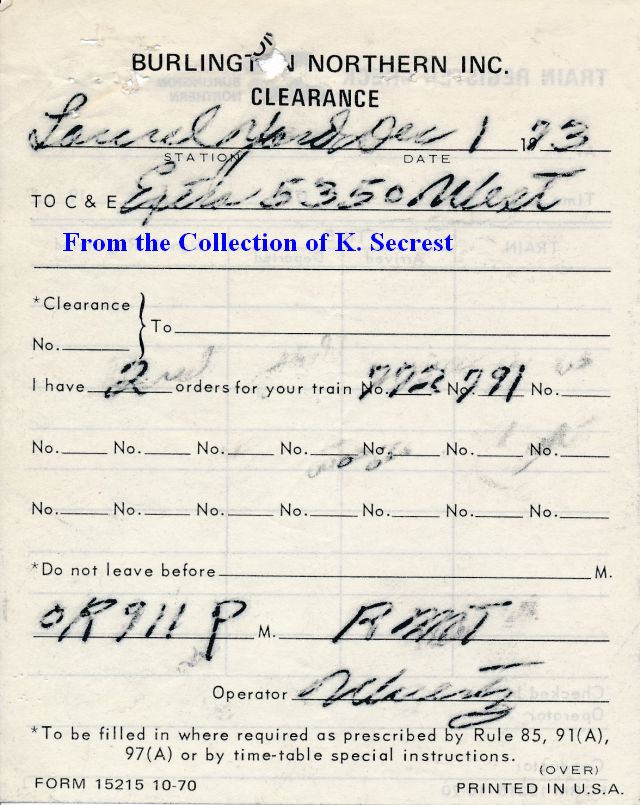 BURLINGTON NORTHERN INC.
CLEARANCE
Laurel Yard Dec 1 1973
STATION DATE
TO C & E Extra 5350 West
From the Collection of K. Secrest
*Clearance
No. To
I have 2 orders for your train No. 772 No. 791 No.
No. No. No. No. No. No. No.
No. No. No. No. No. No. No.
*Do not leave before M.
OK 911 P M. RMT
Operator
*To be filled in where required as prescribed by Rule 85, 91(A),
97(A) or by time-table special instructions.
(OVER)
FORM 15215 10-70 PRINTED IN U.S.A.